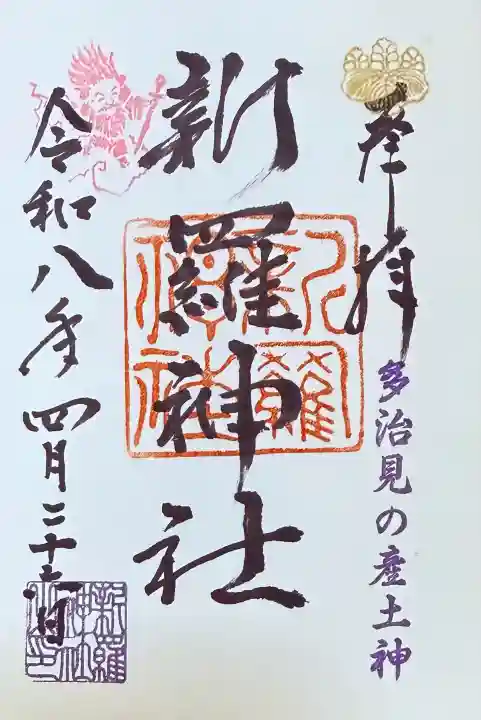 奉拝
多治見の産土神
新羅神社
新羅神社
令和八年四月二十日
新羅神社之印